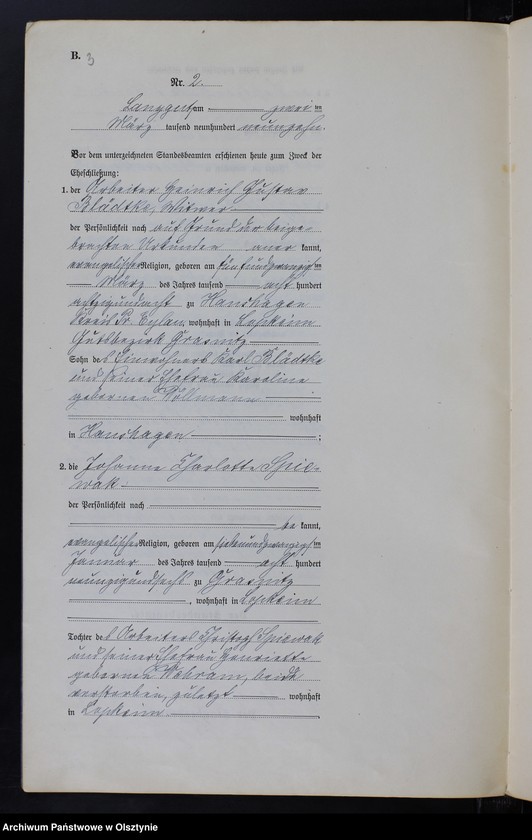 B. 3
Nr. 2.
Langgut am zwei ten
März tausend neunhundert neunzehn.
Vor dem unterzeichneten Standesbeamten erschienen heute zum Zweck der
Eheschließung:
1. der Arbeiter Heinrich Gustav
Blädtke, Witwer
der Persönlichkeit nach auf Grund der beige-
brachten Urkunden aner kannt,
evangelischer Religion, geboren am fünfundzwanzig ten
März des Jahres tausend acht hundert
achtzigundacht zu Hanshagen
Kreis Pr. Eylau, wohnhaft in Lopkeim
Gutsbezirk Grasnitz
Sohn des Einwohners Karl Blädtke
und seiner Ehefrau Karoline
gebornen Röllmann
wohnhaft
in Hanshagen ;
2. die Johanne Charlotte Spie-
wak
der Persönlichkeit nach
be kannt,
evangelischer Religion, geboren am siebenundzwanzig ten
Januar des Jahres tausend acht hundert
neunzigundsechs zu Grasnitz
, wohnhaft in Lopkeim
Tochter des Arbeiters Christoph Spiewak
und seiner Ehefrau Henriette
gebornen beide
verstorben, zuletzt wohnhaft
in Lopkeim .
Archiwum Państwowe w Olsztynie